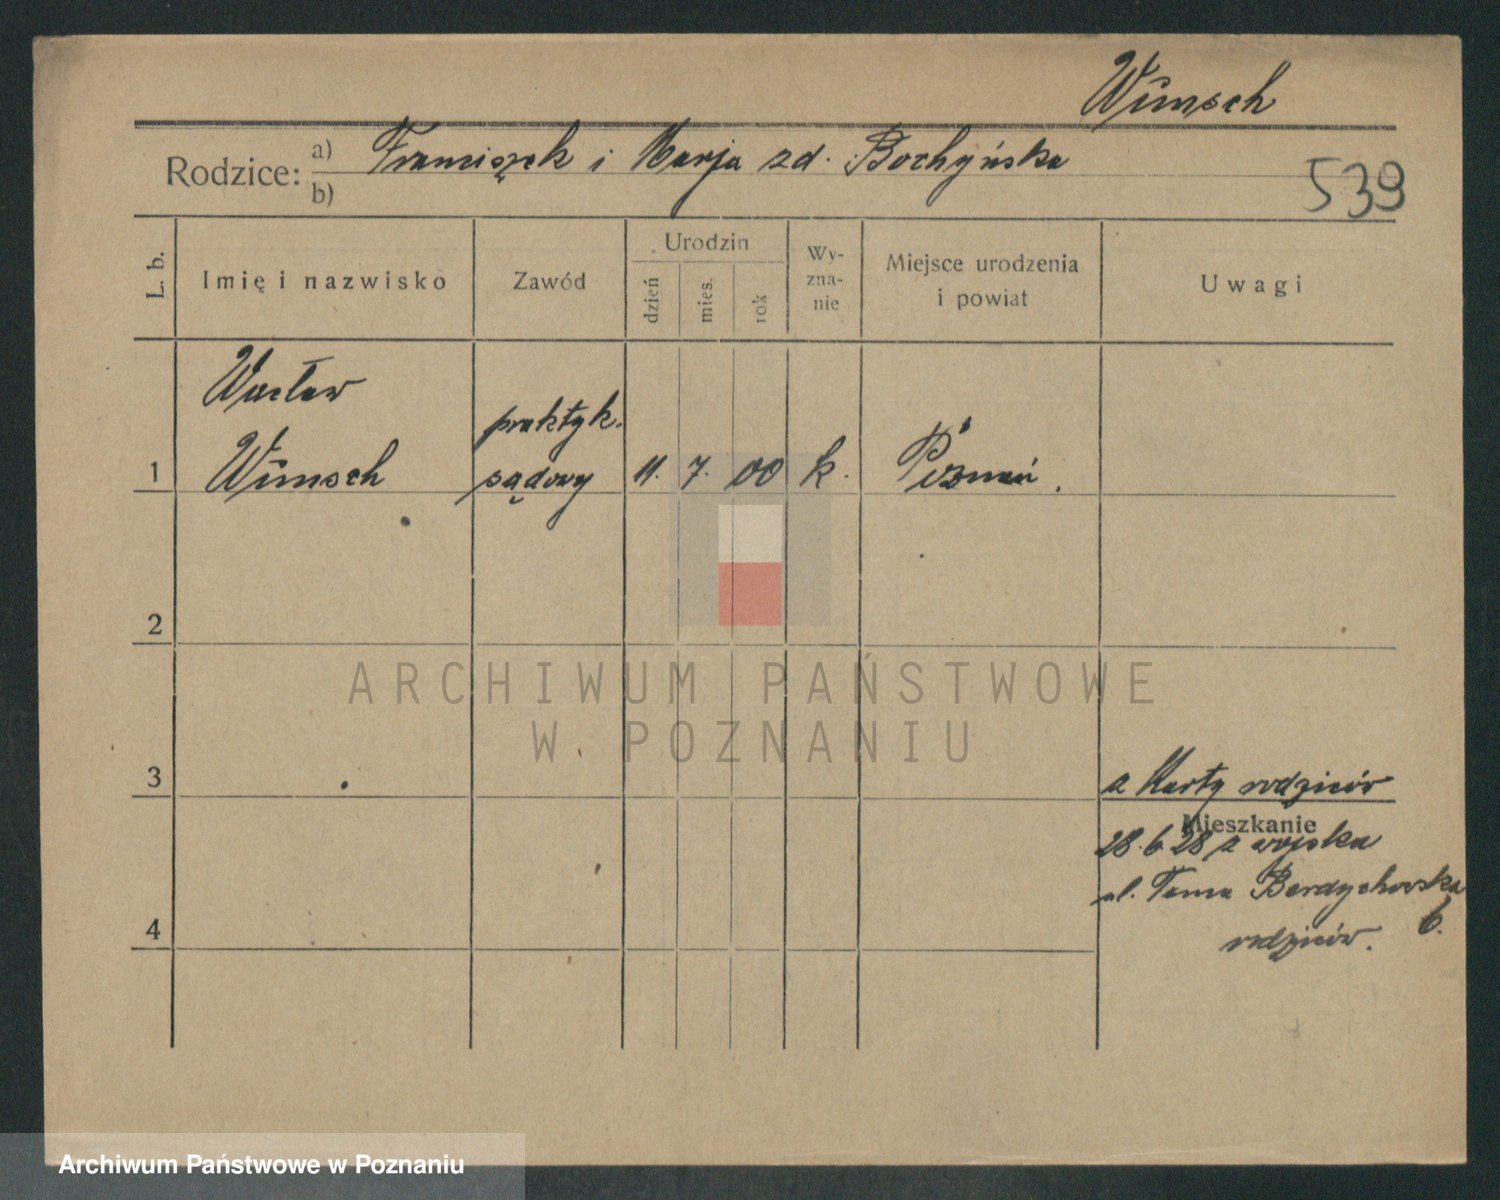 Wünsch
Rodzice: a) Franciszek i Marja zd. Bochyńska
b)
539
L. b.
Imię i nazwisko
Zawód
Urodzin
dzień
mies.
rok
Wy-
zna-
nie
Miejsce urodzenia
i powiat
Uwagi
Wacław
praktyk.
1 Wünsch sądowy 11. 7. 00 k. Poznań.
2
ARCHIWUM PAŃSTWOWE
W POZNANIU
3
z Karty rodziców
Mieszkanie
28.6.28 z wojska
ul. Tama Berdychowska
4
6.
rodziców.
Archiwum Państwowe w Poznaniu